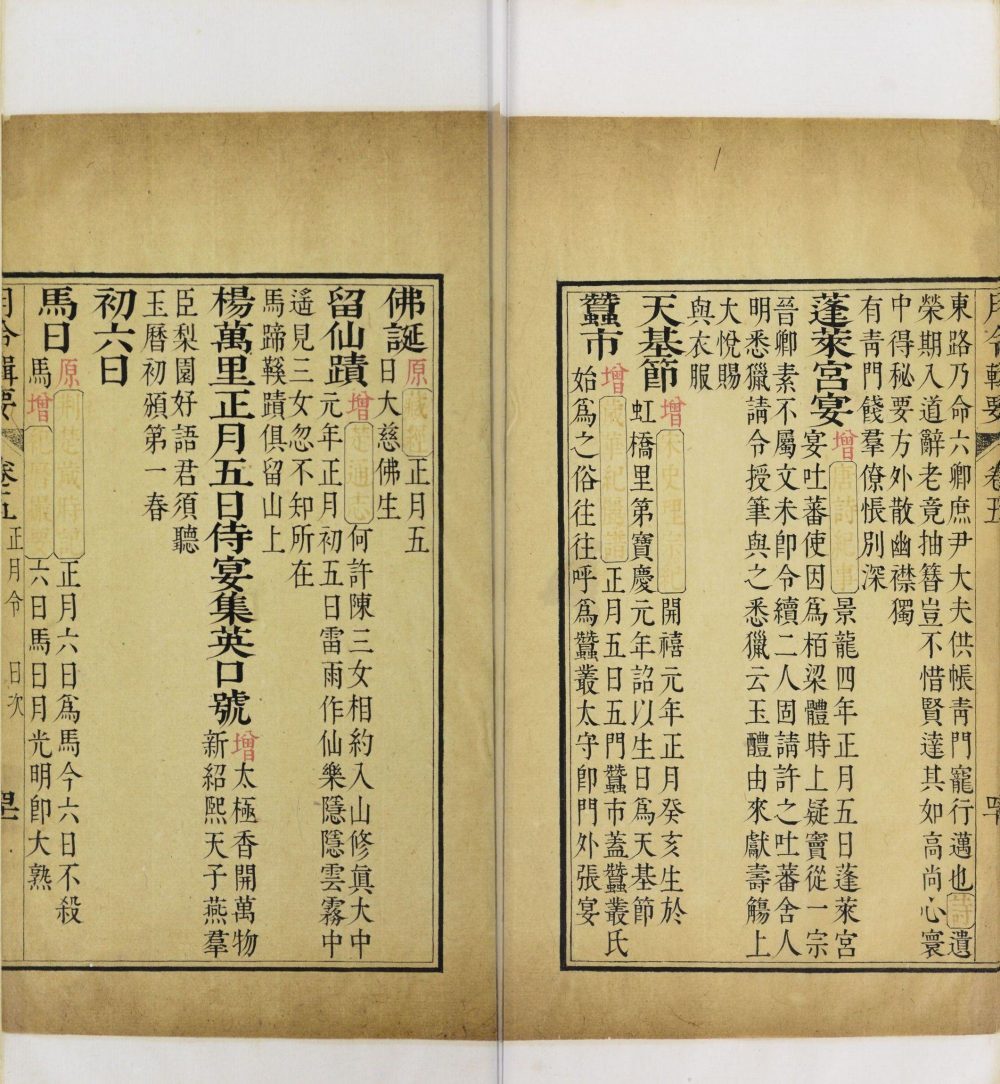 月令輯要 卷五
東路乃命六卿庶尹大夫供帳青門寵行邁也詩遺
榮期入道辭老竟抽簪豈不惜賢達其如高尚心寰
中得秘要方外散幽襟獨
有青門餞羣僚悵別深
蓬萊宮宴 增唐詩紀事景龍四年正月五日蓬萊宮
宴吐蕃使因爲柏梁體時上疑竇從一宗
晉卿素不屬文未卽令續二人固請許之吐蕃舍人
明悉獵請令授筆與之悉獵云玉醴由來獻壽觴上
大悅賜
與衣服
天基節 增宋史理宗紀開禧元年正月癸亥生於
虹橋里第寶慶元年詔以生日爲天基節
蠶市 增歲華紀麗譜正月五日五門蠶市蓋蠶叢氏
始爲之俗往往呼爲蠶叢太守卽門外張宴
佛誕 原藏經正月五
日大慈佛生
留仙蹟 增楚通志何許陳三女相約入山修眞大中
元年正月初五日雷雨作仙樂隱隱雲霧中
遙見三女忽不知所在
馬蹄鞵蹟俱留山上
楊萬里正月五日侍宴集英口號 增太極香開萬物
新紹熙天子燕羣
臣梨園好語君須聽
玉曆初頒第一春
初六日
馬日 原荆楚歲時記正月六日爲馬今六日不殺
馬增紀曆撮要六日馬日月光明卽大熟
月令輯要 卷五 正月令 日次